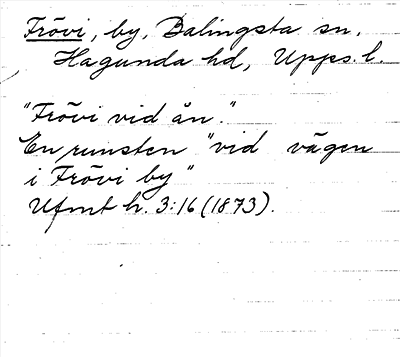 Frövi, by, Balingsta sn,
Hagunda hd, Upps. l.
"Frövi vid ån."
En runsten "vid vägen
i Frövi by"
Ufmt h. 3:16 (1873).